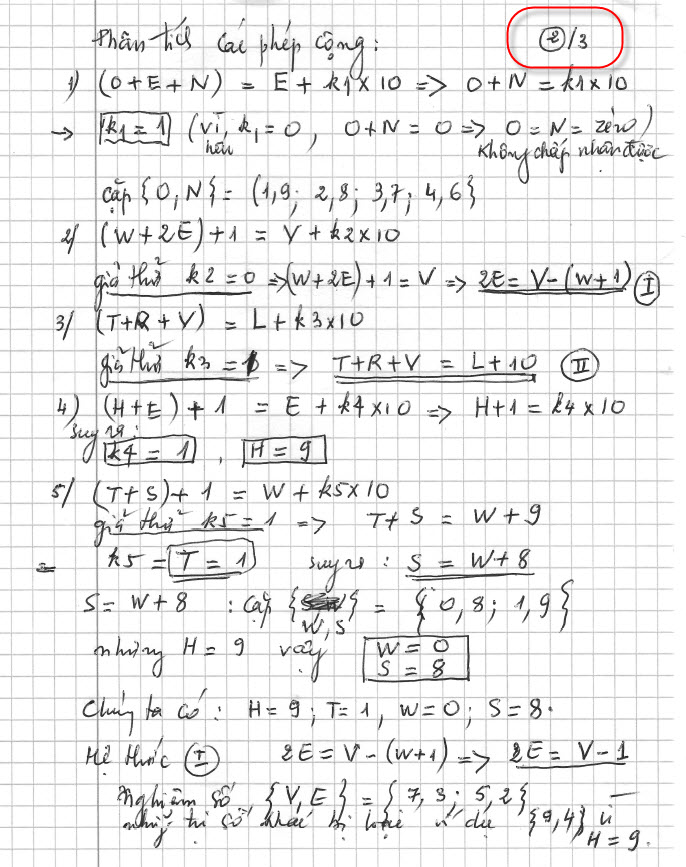 Phân tích các phép cộng : ②/3
1) (O+E+N) = E + k1×10 => O+N = k1×10
→ k1 = 1 (vì, nếu k1 = 0, O+N = 0 => O = N = zéro)
không chấp nhận được
cặp {O,N} = (1,9; 2,8; 3,7; 4,6}
2/ (W+2E)+1 = V + k2×10
giả thử k2 = 0 => (W+2E)+1 = V => 2E = V-(W+1) Ⓘ
3/ (T+R+V) = L + k3×10
giả thử k3 = 1 => T+R+V = L+10 Ⓘ︎Ⓘ
4) (H+E)+1 = E + k4×10 => H+1 = k4×10
suy ra :
k4 = 1 , H = 9
5/ (T+S)+1 = W + k5×10
giả thử k5 = 1 => T+S = W+9
k5 = T = 1 suy ra : S = W+8
S = W+8 : cặp {W,S} = {0,8; 1,9}
nhưng H = 9 vậy W = 0
S = 8
Chúng ta có : H = 9; T = 1, W = 0; S = 8.
Hệ thức Ⓘ 2E = V-(W+1) => 2E = V-1
Nghiệm số, {V,E} = {7,3; 5,2}
những trị số khác bị loại ví dụ {9,4} vì
H = 9.